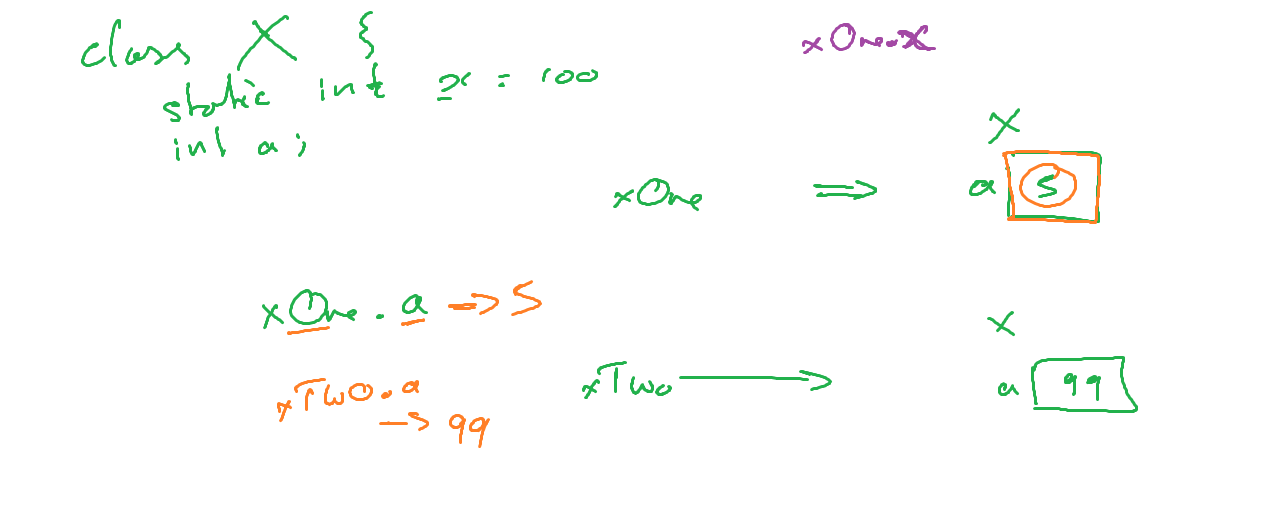 class X {
static int x = 100
int a;
xOne.x
X
xOne ⇒ a 5
xOne.a => 5
X
xTwo → a 99
xTwo.a
→ 99